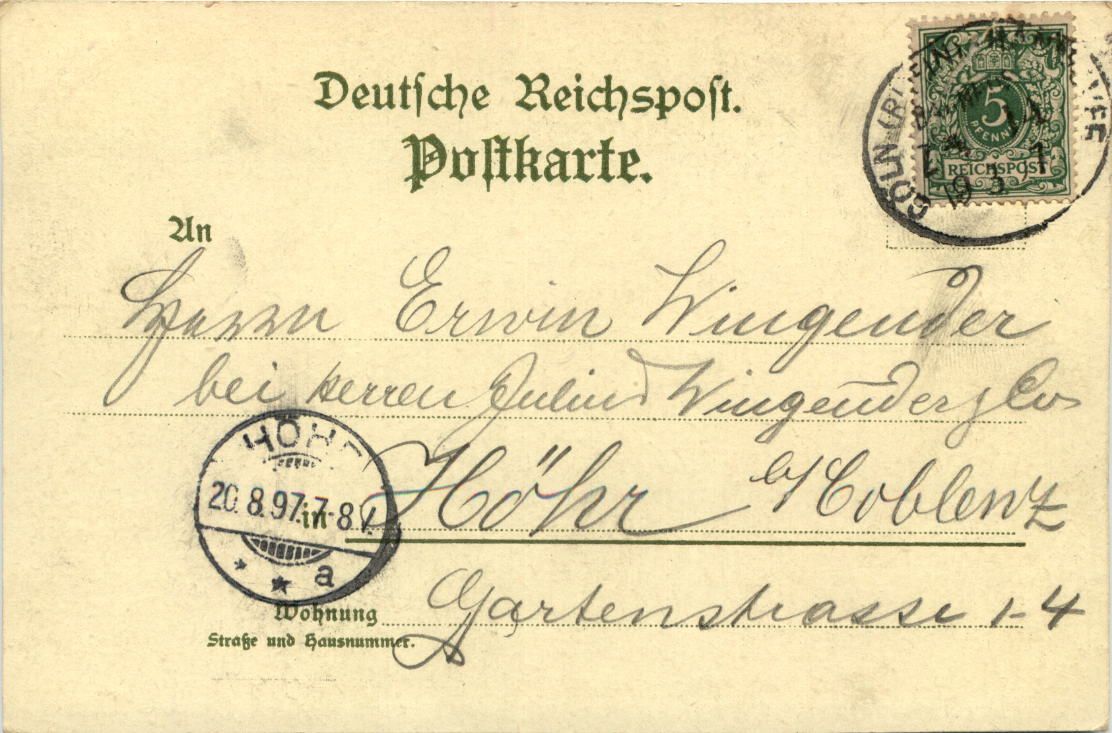 Deutsche Reichspost.
Postkarte.
5
PFENNIG
REICHSPOST
CÖLN (RHEIN)
19 8
An
Herrn Erwin Wingender
bei Herren Julius Wingender & Co
HÖHR
20.8.97.7-8V.
* * a
in Höhr b/Coblenz
Wohnung Gartenstrasse 1-4
Straße und Hausnummer.